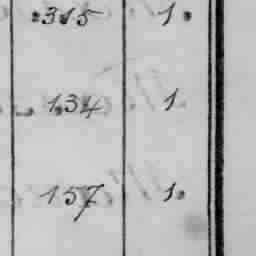 315 1.
134 1
157 1.